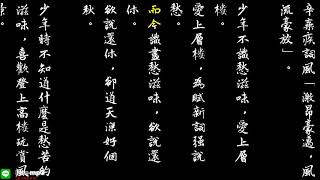 辛棄疾詞風—激昂豪邁，風
流豪放—。
少年不識愁滋味，愛上層
樓。
愛上層樓，為賦新詞強說
愁。
而今識盡愁滋味，欲說還
休。
欲說還休，卻道天涼好個
秋。
少年時不知道什麼是愁苦的
滋味，喜歡登上高樓玩賞風